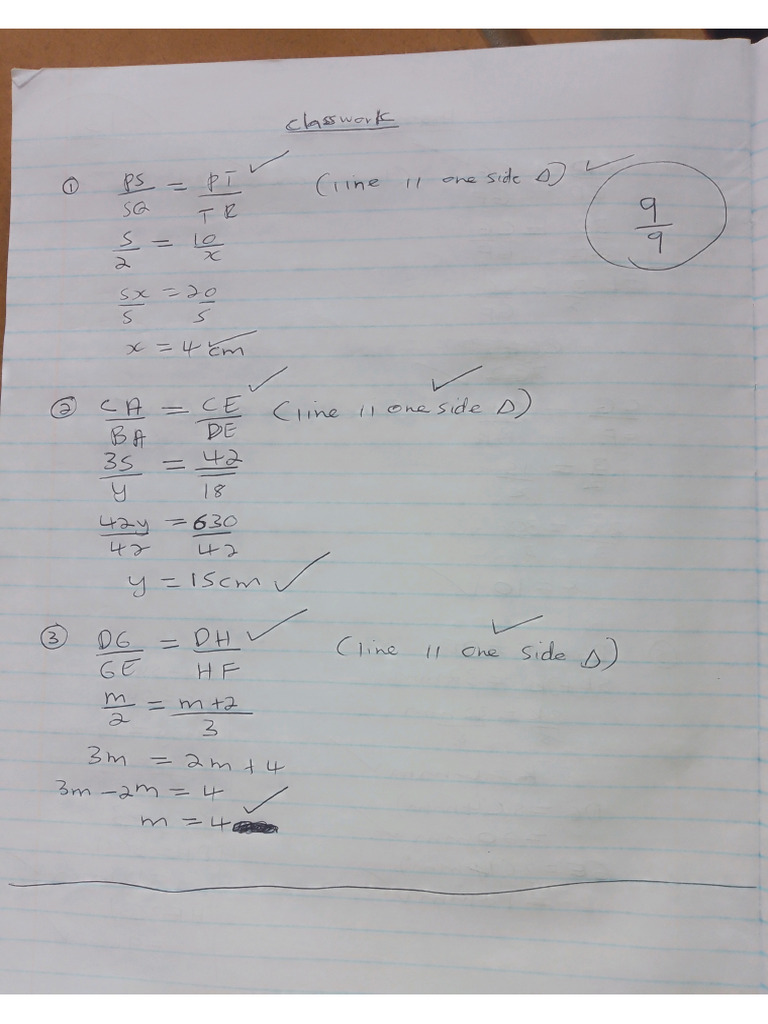 classwork
① PS/SQ = PT/TR (line || one side Δ)
5/2 = 10/x
5x/5 = 20/5
x = 4cm
② CA/BA = CE/DE (line || one side Δ)
35/y = 42/18
42y/42 = 630/42
y = 15cm
③ DG/GE = DH/HF (line || one side Δ)
m/2 = m+2/3
3m = 2m + 4
3m - 2m = 4
m = 4
9/9